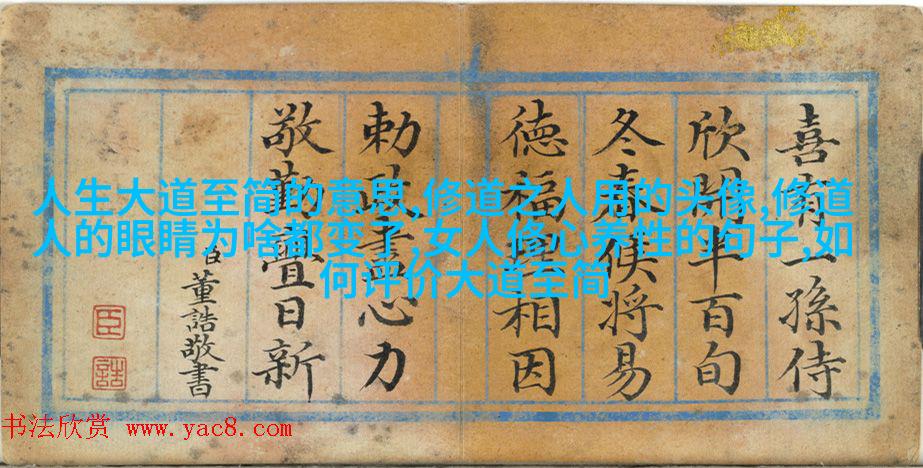 喜有一孫侍
欣開半百旬
冬春候將易
徳福理相因
勅政盡心力
敬疊日新
臣董誥敬書
臣
誥
人生大道至简的意思,修道之人用的头像,修道
人的眼睛为啥都变了,女人修心养性的句子,如
何评价大道至简
书法欣赏 www.yac8.com